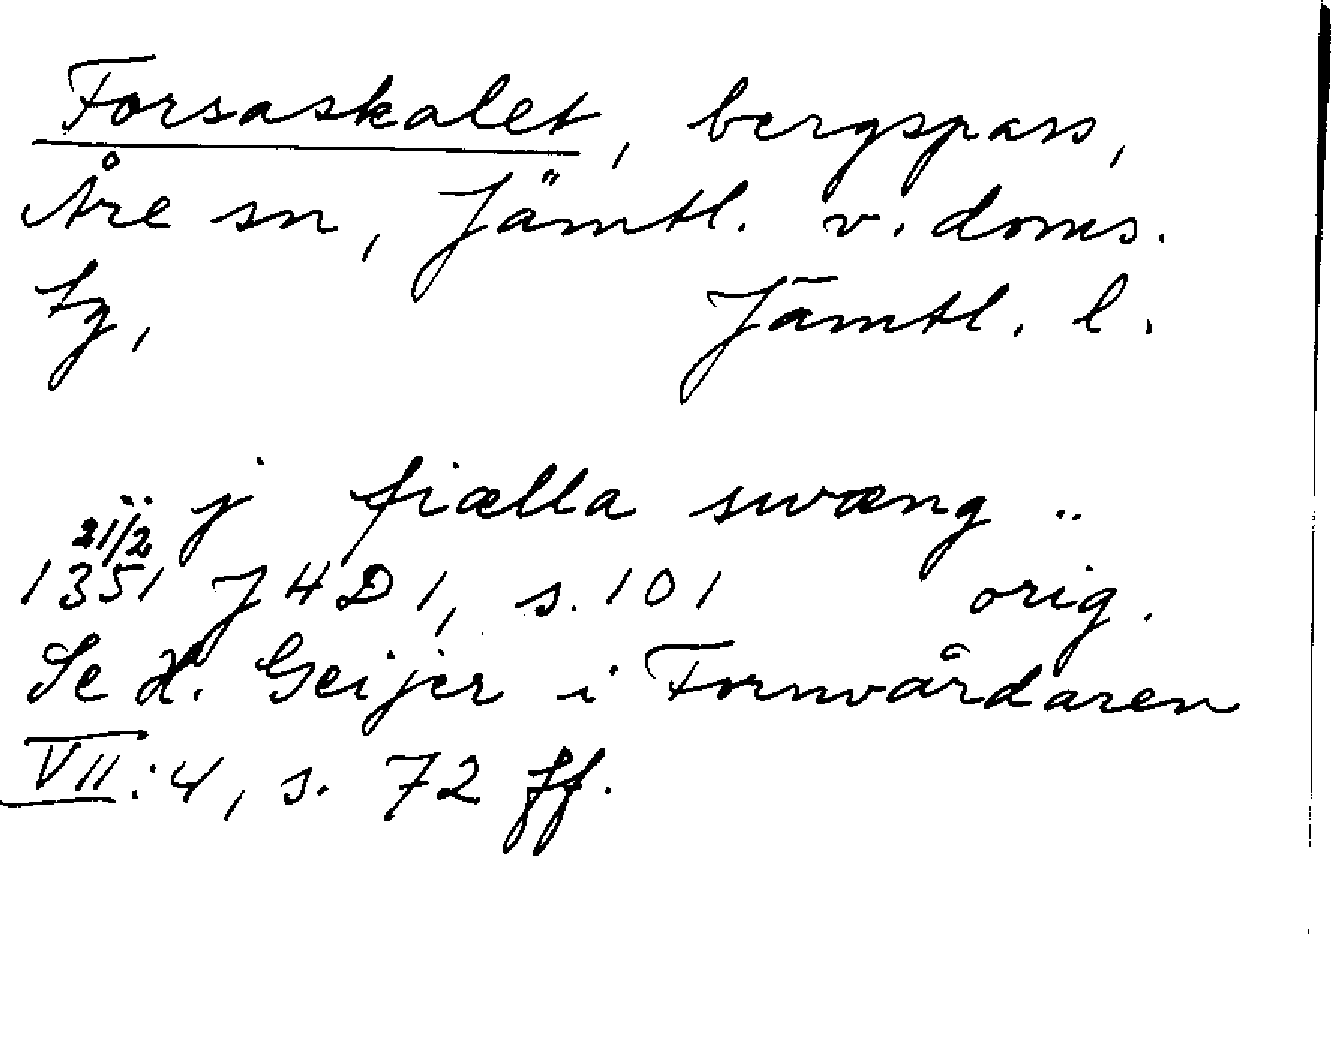 Forsaskalet, bergspass,
Åre sn, Jämtl. v. doms.
tg, Jämtl. l.
.. j fiælla swæng ..
1351 21/2 J H D 1, s. 101 orig.
Se H. Geijer i Fornvårdaren
VII:4, s. 72 ff.